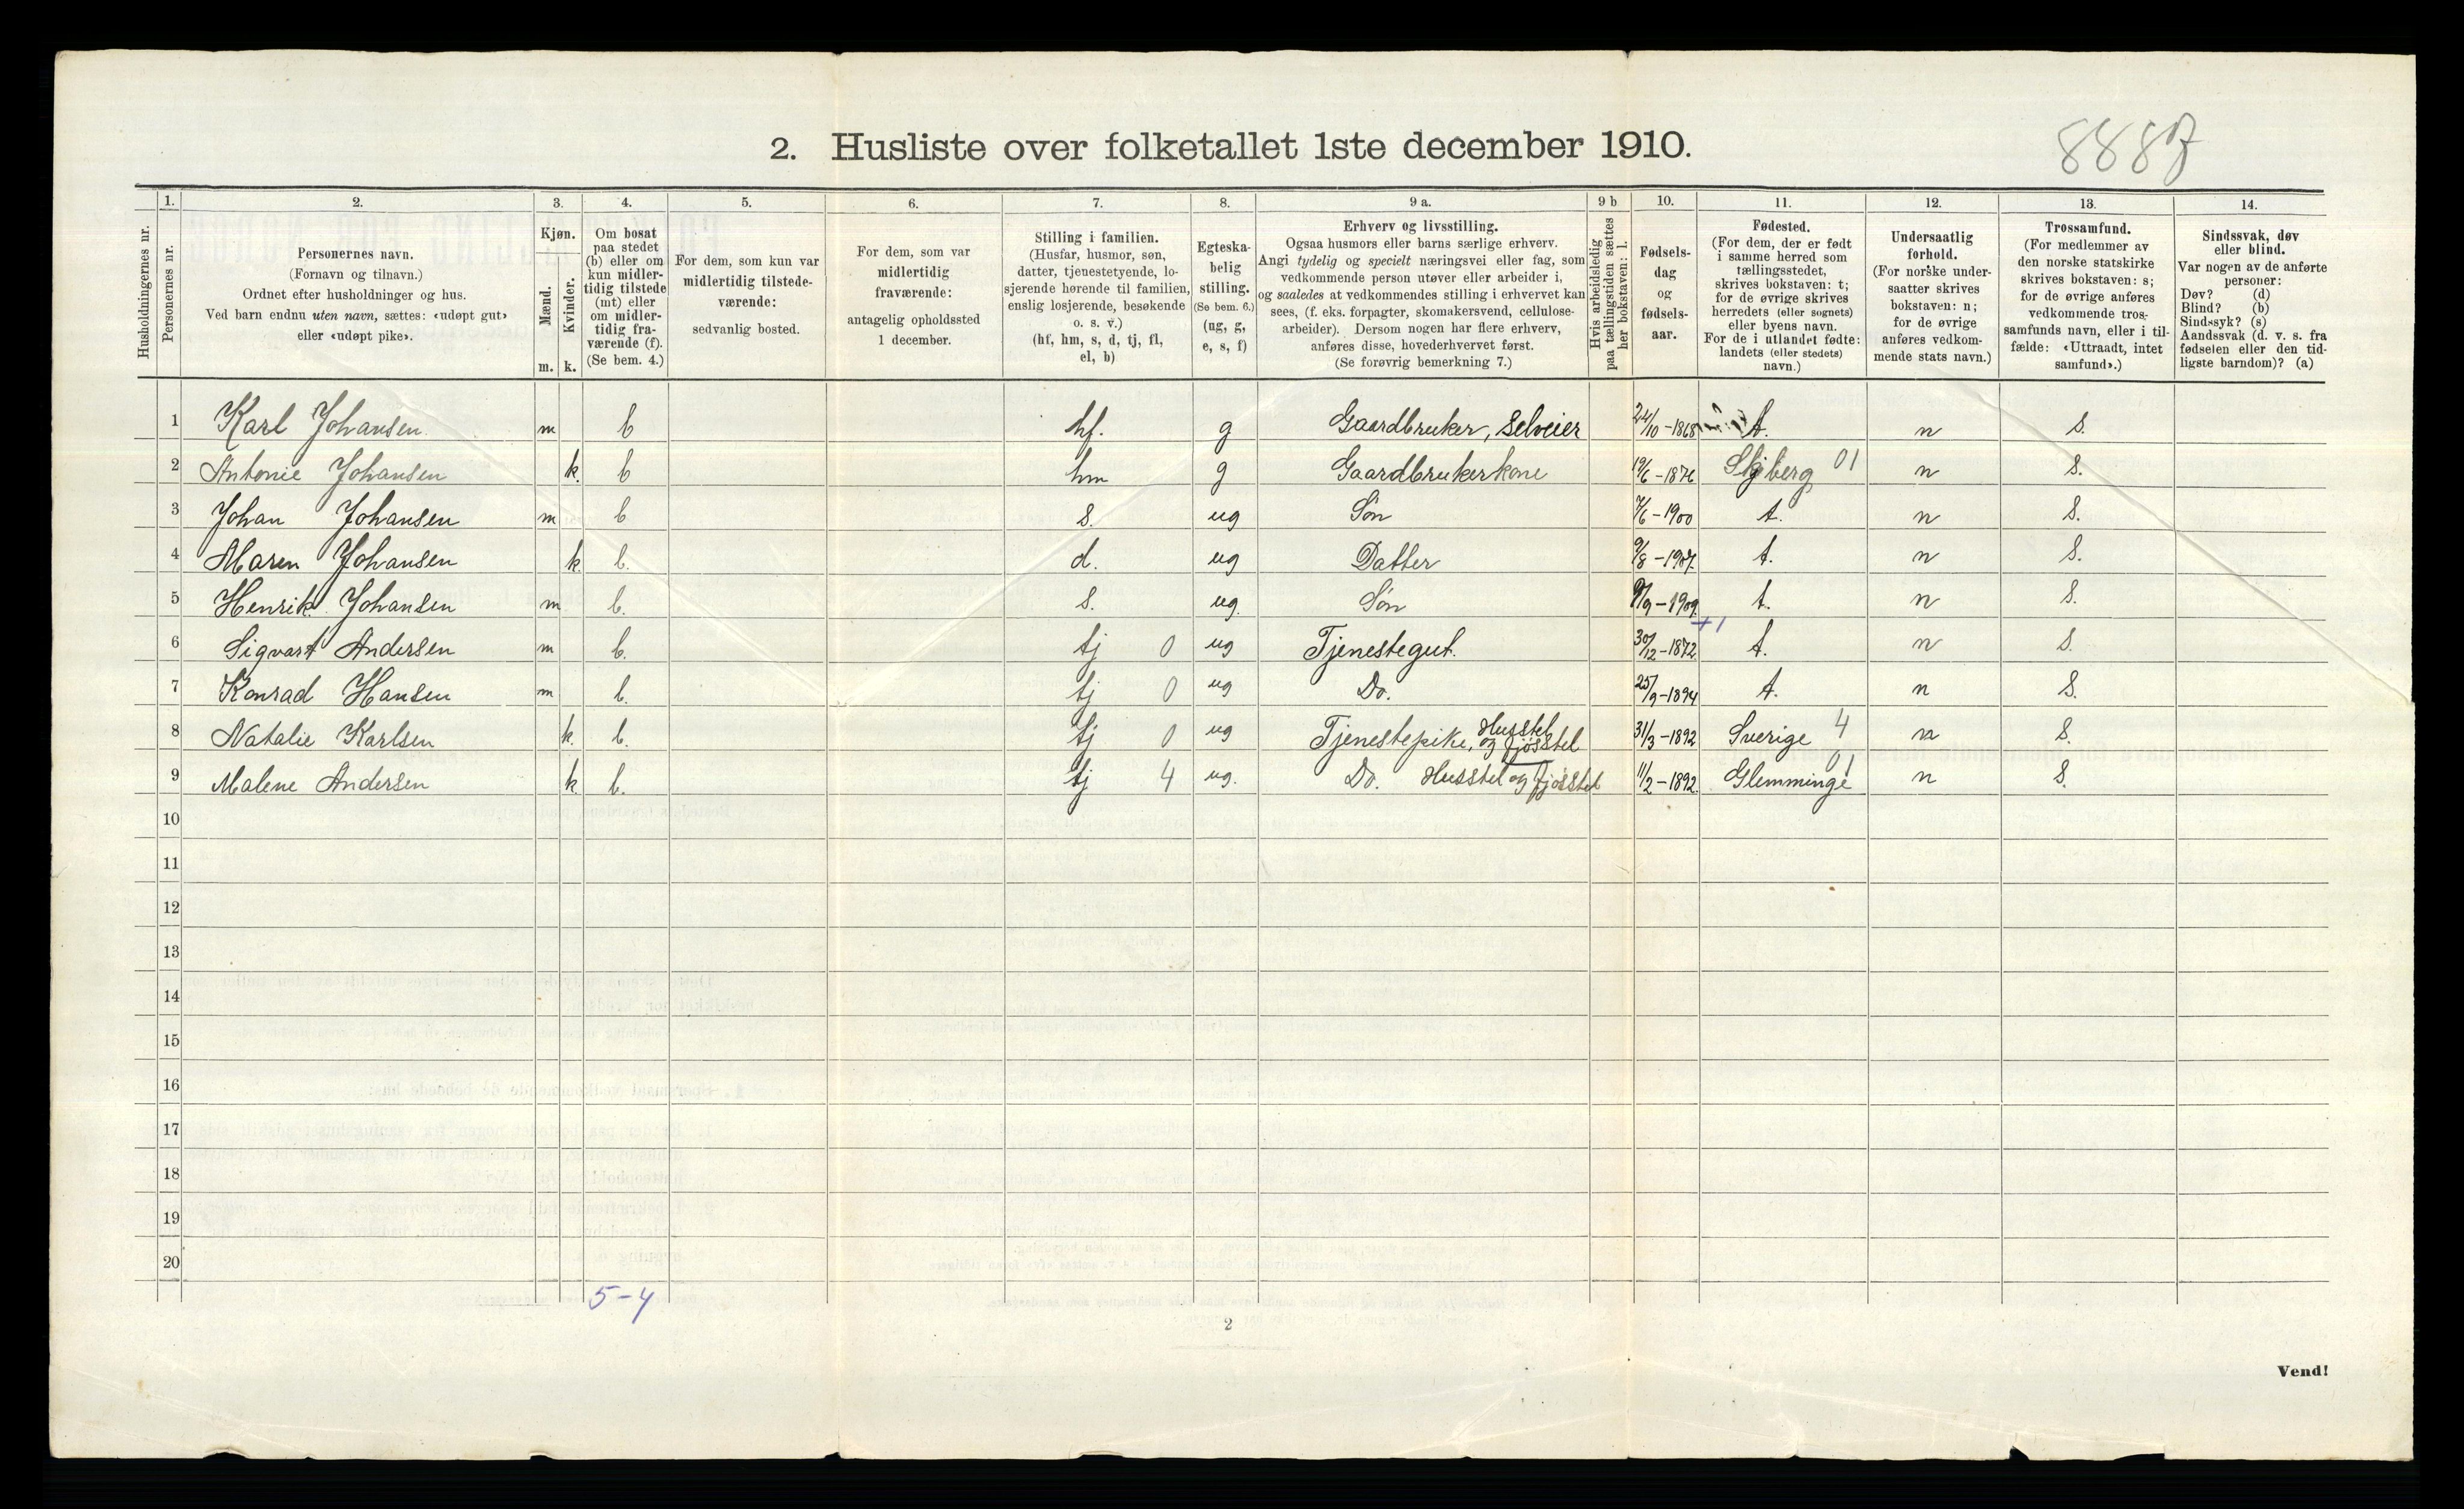 8887
2. Husliste over folketallet 1ste december 1910.
Husholdningernes nr.
1.
Personernes nr.
2.
Personernes navn.
(Fornavn og tilnavn.)
Ordnet efter husholdninger og hus.
Ved barn endnu uten navn, sættes: «udøpt gut»
eller «udøpt pike».
3.
Kjøn.
Mænd.
Kvinder.
m. k.
4.
Om bosat
paa stedet
(b) eller om
kun midler-
tidig tilstede
(mt) eller
om midler-
tidig fra-
værende (f).
(Se bem. 4.)
5.
For dem, som kun var
midlertidig tilstede-
værende:
sedvanlig bosted.
6.
For dem, som var
midlertidig
fraværende:
antagelig opholdssted
1 december.
7.
Stilling i familien.
(Husfar, husmor, søn,
datter, tjenestetyende, lo-
sjerende hørende til familien,
enslig losjerende, besøkende
o. s. v.)
(hf, hm, s, d, tj, fl,
el, b)
8.
Egteska-
belig
stilling.
(Se bem. 6.)
(ug, g,
e, s, f)
9 a.
Erhverv og livsstilling.
Ogsaa husmors eller barns særlige erhverv.
Angi tydelig og specielt næringsvei eller fag, som
vedkommende person utøver eller arbeider i,
og saaledes at vedkommendes stilling i erhvervet kan
sees, (f. eks. forpagter, skomakersvend, cellulose-
arbeider). Dersom nogen har flere erhverv,
anføres disse, hovederhvervet først.
(Se forøvrig bemerkning 7.)
9 b
Hvis arbeidsledig
paa tællingstiden sættes
her bokstaven: l.
10.
Fødsels-
dag
og
fødsels-
aar.
11.
Fødested.
(For dem, der er født
i samme herred som
tællingsstedet,
skrives bokstaven: t;
for de øvrige skrives
herredets (eller sognets)
eller byens navn.
For de i utlandet fødte:
landets (eller stedets)
navn.)
12.
Undersaatlig
forhold.
(For norske under-
saatter skrives
bokstaven: n;
for de øvrige
anføres vedkom-
mende stats navn.)
13.
Trossamfund.
(For medlemmer av
den norske statskirke
skrives bokstaven: s;
for de øvrige anføres
vedkommende tros-
samfunds navn, eller i til-
fælde: «Uttraadt, intet
samfund».)
14.
Sindssvak, døv
eller blind.
Var nogen av de anførte
personer:
Døv? (d)
Blind? (b)
Sindssyk? (s)
Aandssvak (d. v. s. fra
fødselen eller den tid-
ligste barndom)? (a)
1 Karl Johansen. m b hf. g Gaardbruker, Selveier 24/10-1868 t. n S.
2 Antonie Johansen k. b hm g Gaardbrukerkone 19/6-1876 Skjberg 01 n S.
3 Johan Johansen m b s. ug Søn 7/6-1900 t. n S.
4 Maren Johansen k. b. d. ug Datter 9/8-1907. t. n S.
5 Henrik Johansen m b. s. ug. Søn /9-1909. t. n S.
6 Sigvart Andersen m b. tj 0 ug Tjenestegut. 30/12-1872. +1 t. n S.
7 Konrad Hansen m b. tj 0 ug Do. 25/9-1894 t. n S.
8 Natalie Karlsen k. b. tj 0 ug Tjenestepike, Husstel og fjøsstel 31/3-1892 Sverige 4 n S.
9 Malene Andersen k. b. tj 4 ug. Do. Husstel og fjøsstel 11/2-1892. Glemminge 01 n S.
10
11
12
13
14
15
16
17
18
19
20
5-4
2
Vend!